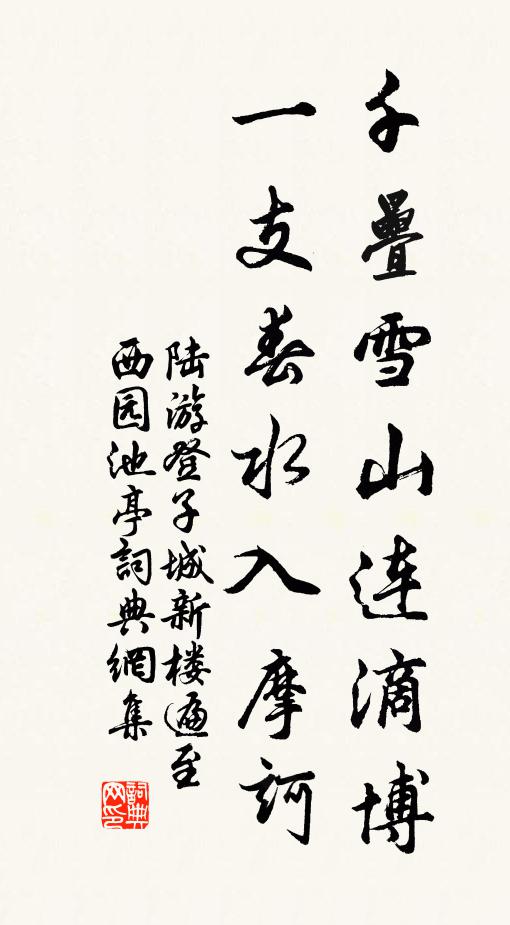 千疊雪山连滴博
一支春水入摩訶
陆游登子城新楼遍至
西园池亭詞典網集
詞典网印